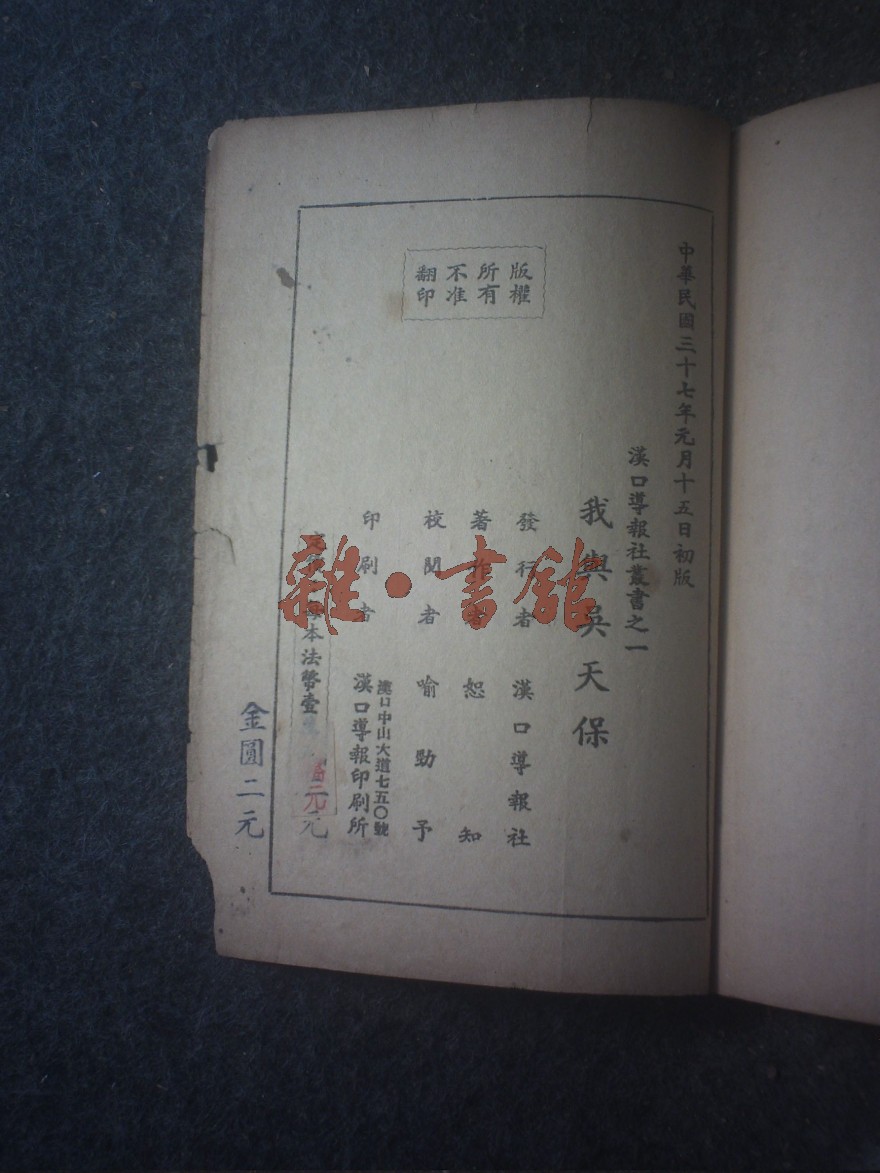 中華民國三十七年元月十五日初版
漢口導報社叢書之一
我與吳天保
版權
所有
不准
翻印
發行者 漢口導報社
著作者 恕知
校閱者 喻勁予
印刷者 漢口導報印刷所
漢口中山大道七五〇號
每本法幣壹
元
金圓二元
雜·書館